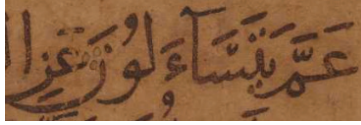 عَمَّ يَتَسَآءَلُونَ عَنِ ا